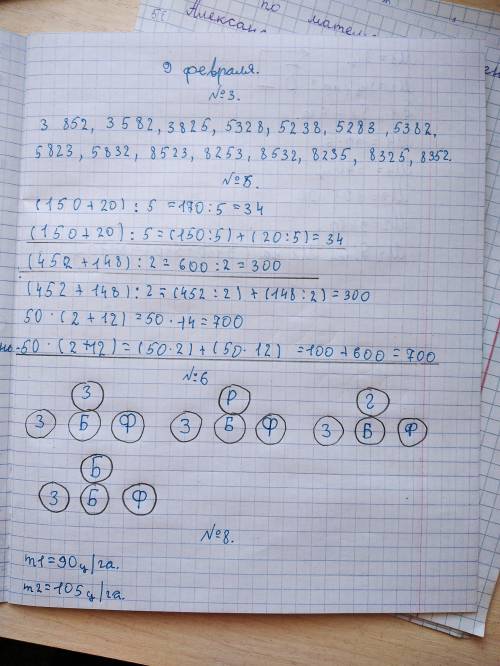 по
51
Александ
по матема
9 февраля.
№3.
3 852, 3582, 3825, 5328, 5238, 5283, 5382,
5823, 5832, 8523, 8253, 8532, 8235, 8325, 8352.
№5.
(150+20) : 5 = 170 : 5 = 34
(150+20) : 5 = (150:5) + (20:5) = 34
(452 + 148) : 2 = 600 : 2 = 300
(452 + 148) : 2 = (452 : 2) + (148 : 2) = 300
50 · (2 + 12) = 50 · 14 = 700
50 · (2+12) = (50·2) + (50·12) = 100 + 600 = 700
№6
З Р Г
З Б Ф З Б Ф З Б Ф
Б
З Б Ф
№8.
m1 = 90 ц/га.
m2 = 105 ц/га.